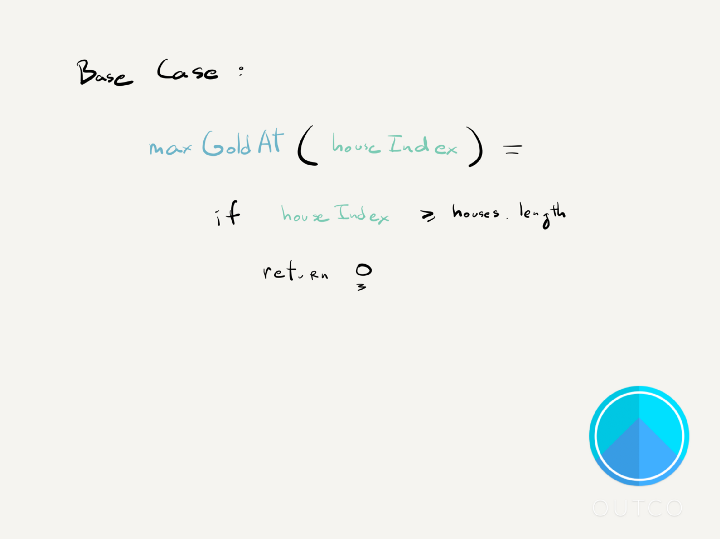 Base Case :
maxGoldAt ( houseIndex ) =
if houseIndex ≥ houses.length
return 0
OUTCO